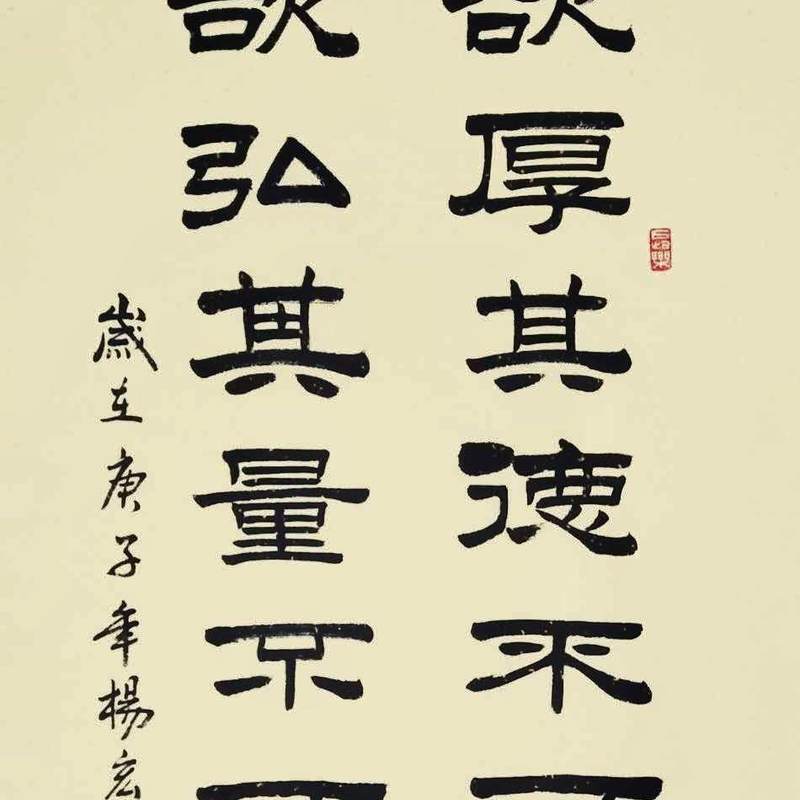 欲厚其德不可
欲弘其量不可
歲在庚子年楊宏